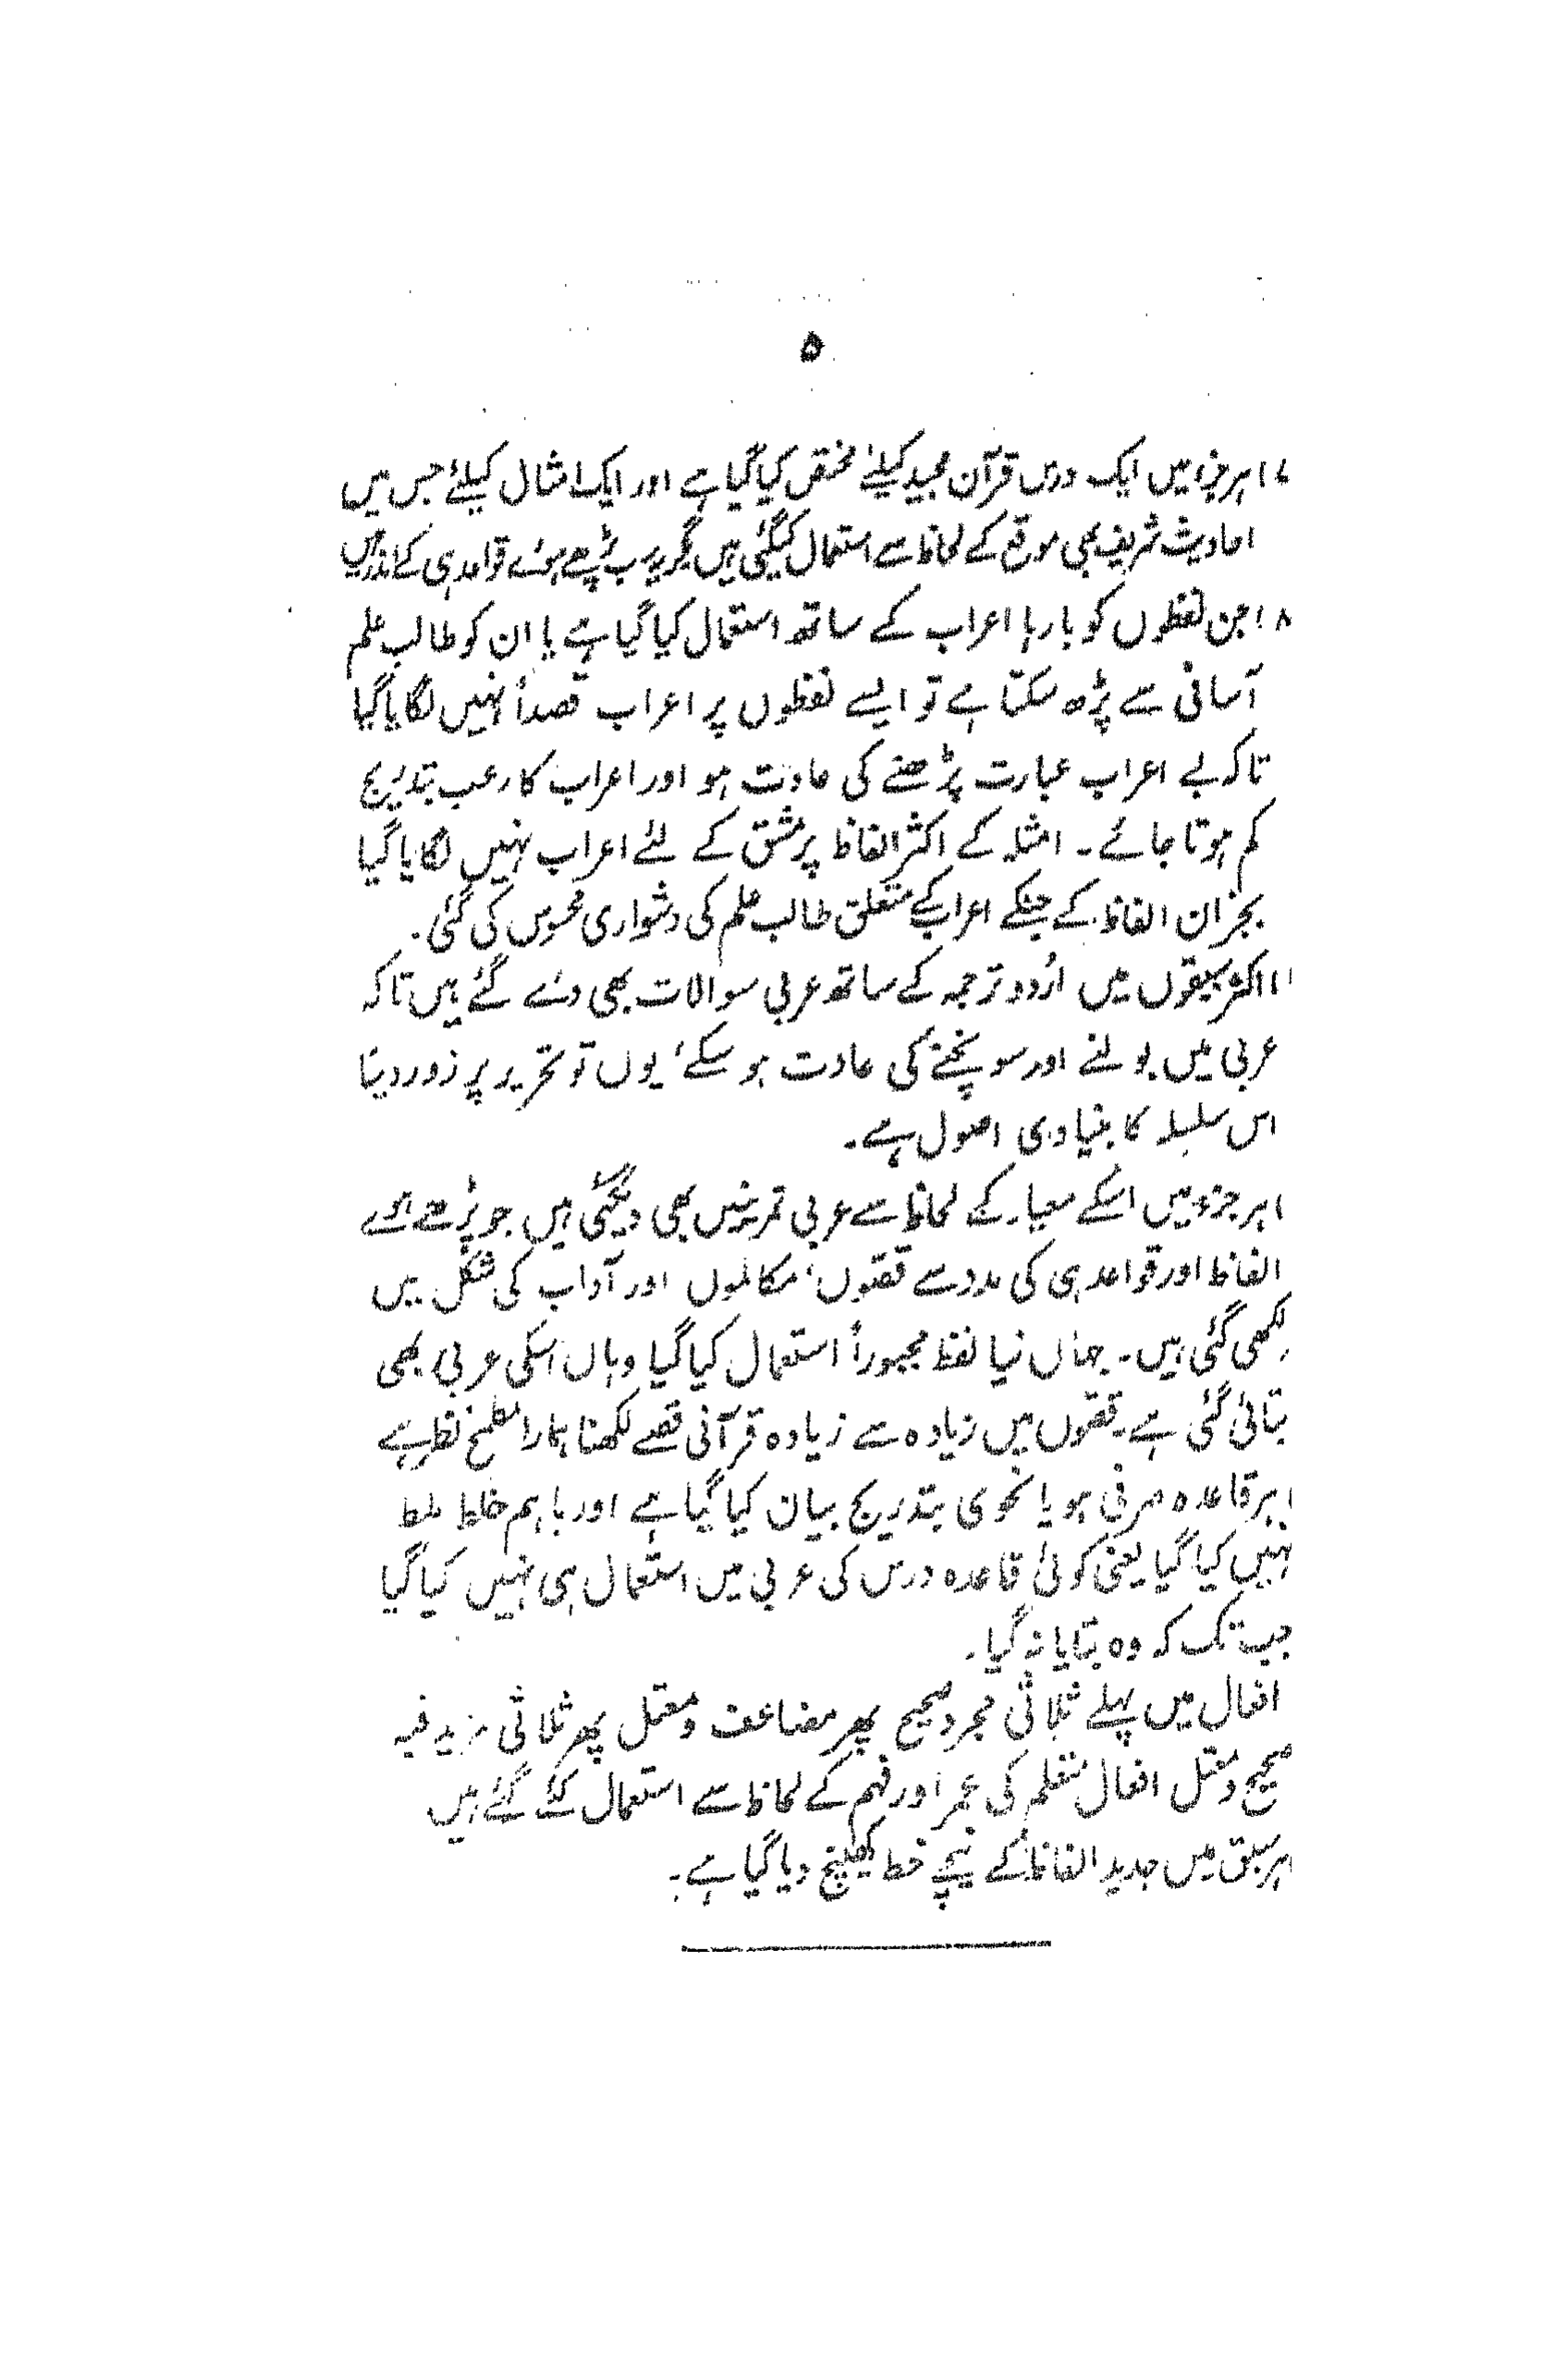 ۵
۷) ہر جزء میں ایک درس قرآن مجید کیلئے مختص کیا گیا ہے اور ایک امثال کیلئے جس میں
احادیث شریف بھی موقع کے لحاظ سے استعمال کیگئی ہیں مگر یہ سب پڑھے ہوئے قواعد ہی کے اندر ہیں
۸) جن لفظوں کو بارہا اعراب کے ساتھ استعمال کیا گیا ہے یا ان کو طالب علم
آسانی سے پڑھ سکتا ہے تو ایسے لفظوں پر اعراب قصداً نہیں لگایا گیا
تاکہ بے اعراب عبارت پڑھنے کی عادت ہو اور اعراب کا رعب بتدریج
کم ہوتا جائے۔ امثلہ کے اکثر الفاظ پر مشق کے لئے اعراب نہیں لگایا گیا
بجز ان الفاظ کے جنکے اعراب کے متعلق طالب علم کی دشواری محسوس کی گئی۔
) اکثر سبقوں میں اُردو ترجمہ کے ساتھ عربی سوالات بھی دئے گئے ہیں تاکہ
عربی میں بولنے اور سونچنے کی عادت ہو سکے، یوں تو تحریر پر زور دینا
اس سلسلہ کا بنیادی اصول ہے۔
) ہر جزء میں اسکے معیار کے لحاظ سے عربی تمرینیں بھی دیگئی ہیں جو پڑھے ہوئے
الفاظ اور قواعد ہی کی مدد سے قصّوں، مکالموں اور آداب کی شکل میں
لکھی گئی ہیں۔ جہاں نیا لفظ مجبوراً استعمال کیا گیا وہاں اسکی عربی بھی
بتائی گئی ہے۔ قصّوں میں زیادہ سے زیادہ قرآنی قصے لکھنا ہمارا مطمح نظر ہے
) ہر قاعدہ صرفی ہو یا نحوی بتدریج بیان کیا گیا ہے اور باہم خلط ملط
نہیں کیا گیا یعنی کوئی قاعدہ درس کی عربی میں استعمال ہی نہیں کیا گیا
جب تک کہ وہ بتایا نہ گیا۔
افعال میں پہلے ثلاثی مجرد صحیح پھر مضاعف و معتل پھر ثلاثی مزید فیہ
صحیح و معتل افعال متعلم کی عمر اور فہم کے لحاظ سے استعمال کئے گئے ہیں
) ہر سبق میں جدید الفاظ کے نیچے خط کھینچ دیا گیا ہے۔